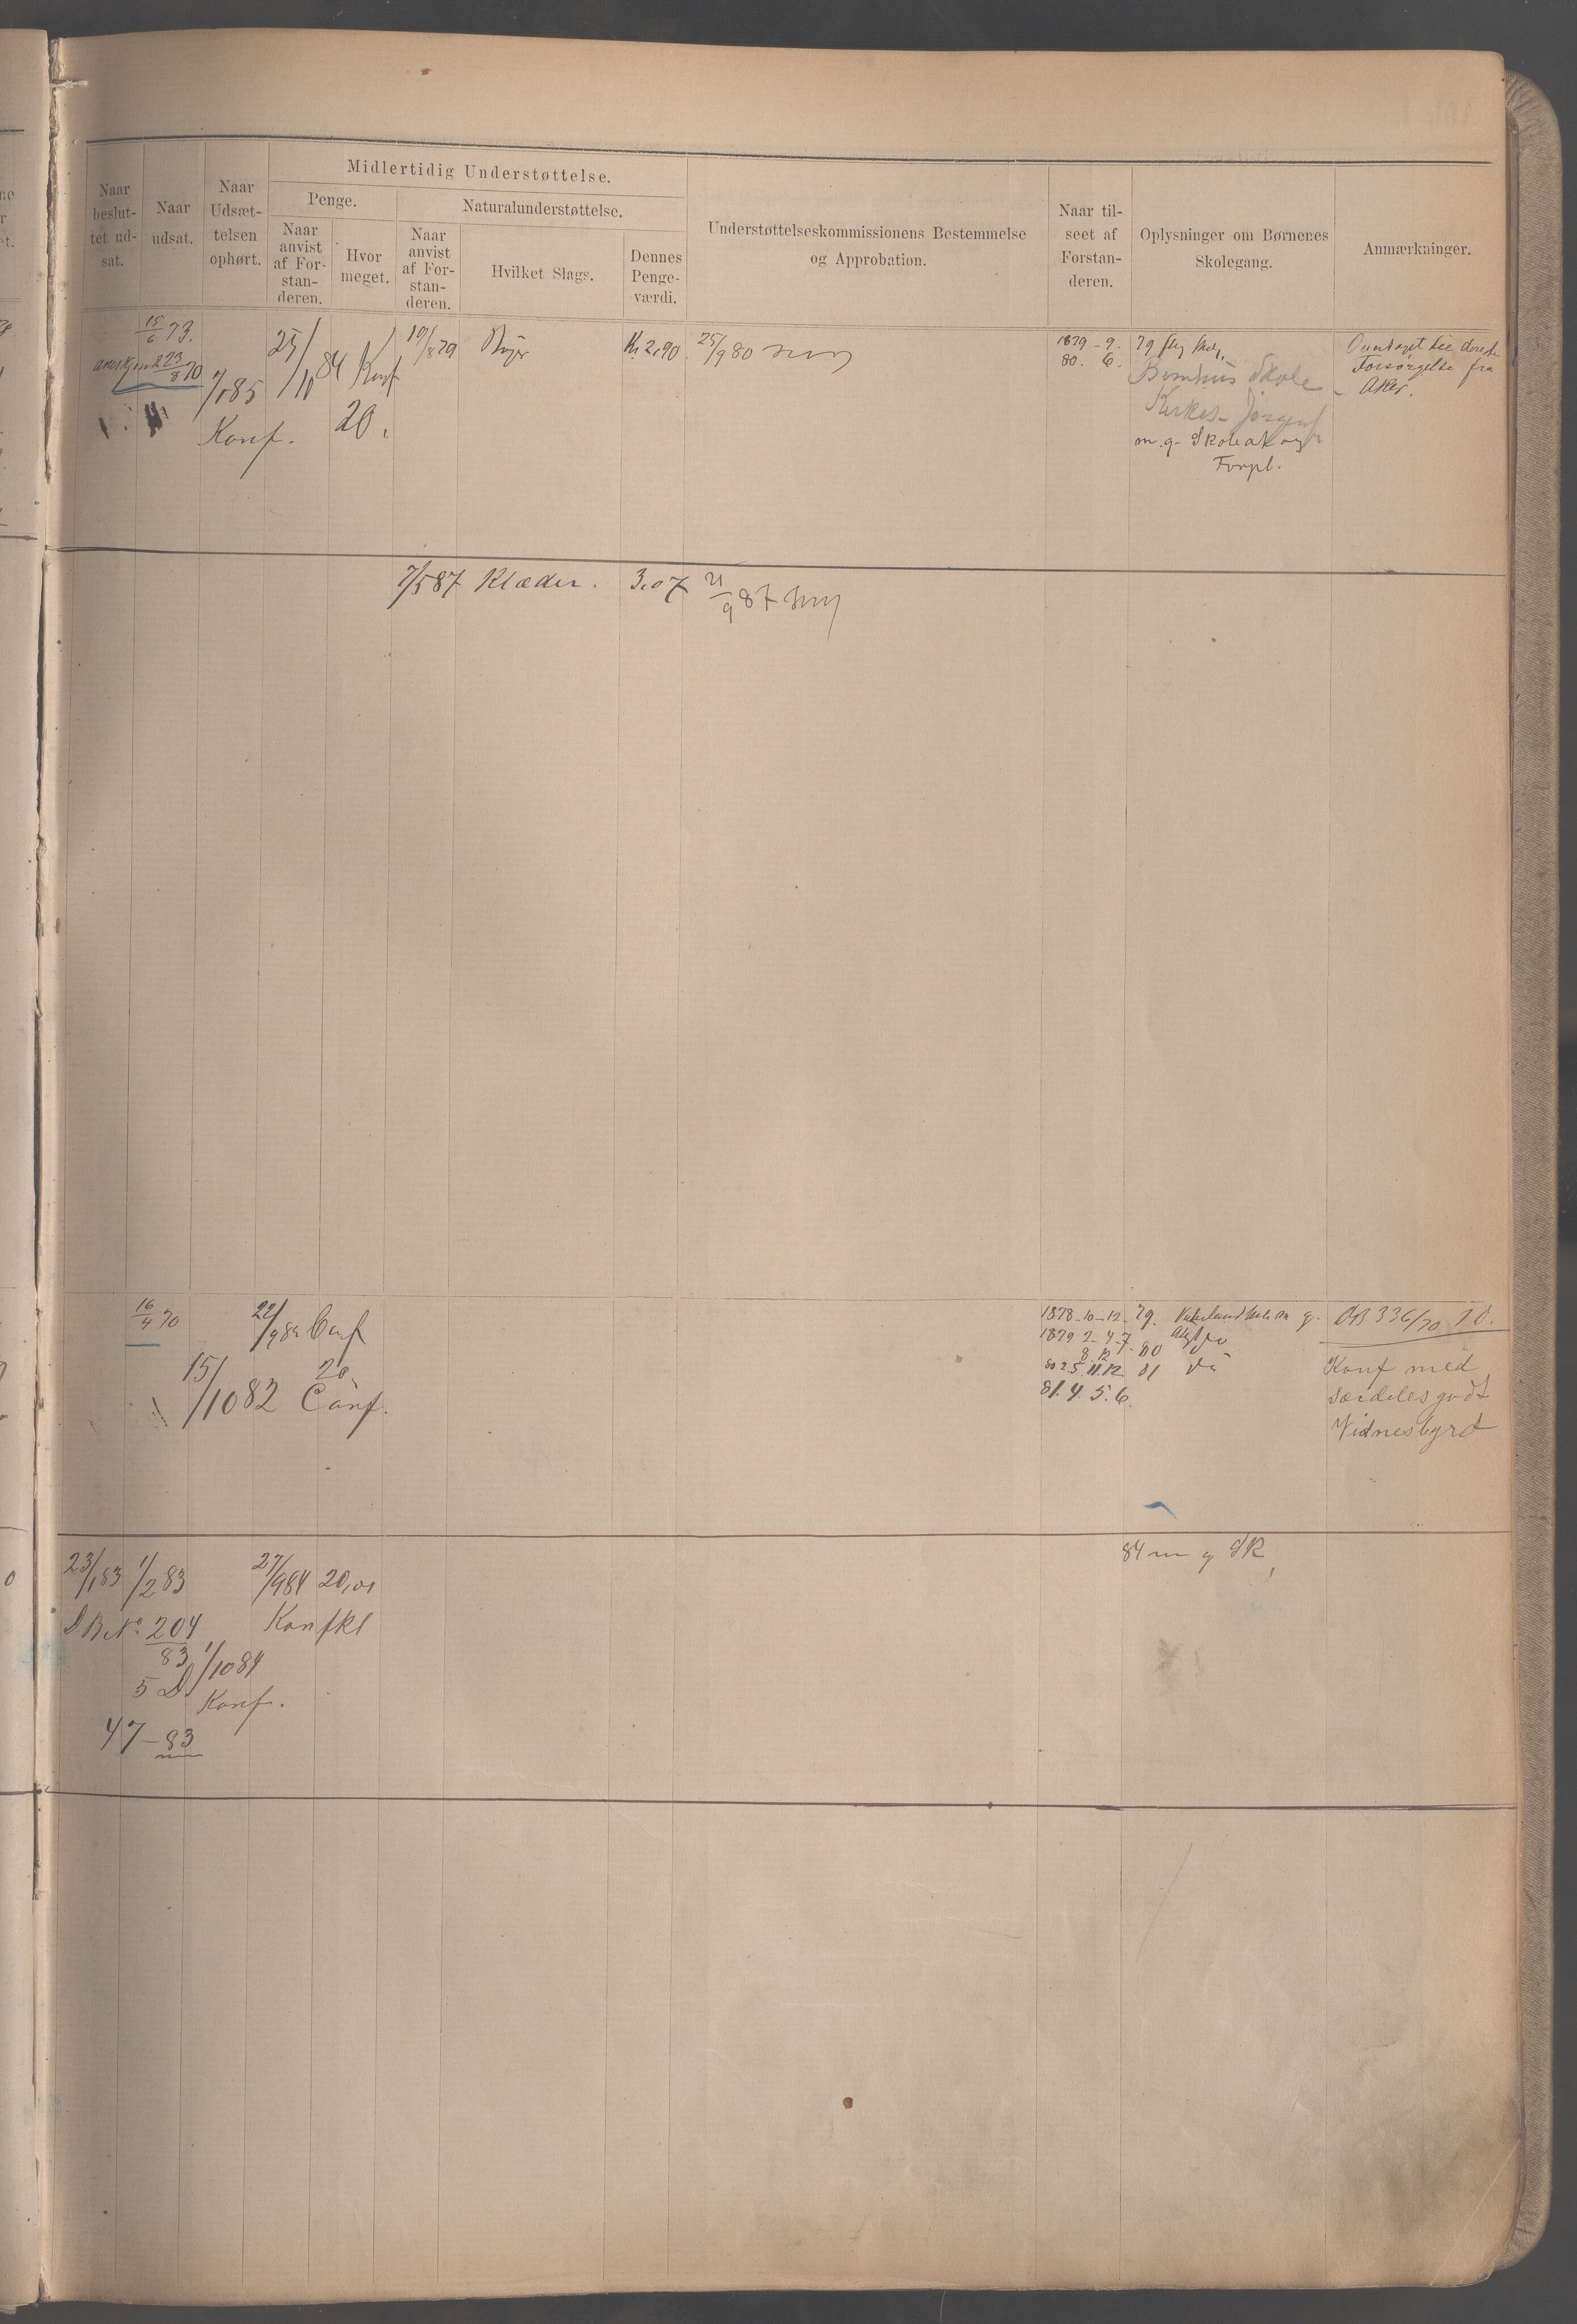 Midlertidig Understøttelse.
Penge.
Naturalunderstøttelse.
Naar
beslut-
tet ud-
sat.
Naar
udsat.
Naar
Udsæt-
telsen
ophørt.
Naar
anvist
af For-
stan-
deren.
Hvor
meget.
Naar
anvist
af For-
stan-
deren.
Hvilket Slags.
Dennes
Penge-
værdi.
Understøttelseskommissionens Bestemmelse
og Approbation.
Naar til-
seet af
Forstan-
deren.
Oplysninger om Børnenes
Skolegang.
Anmærkninger.
15/6 73.
23/8 70
1/1 85
Konf.
25/10 84 Konf
20.
19/8 79
Kr 2,90
25/9 80
1879 - 9.
80. 6.
79
Skole
m. g. Skoleak og
Forpl.
Forsørgelse fra
Aker.
7/5 87 Klæder. 3.07 21/9 87
16/4 70
22/9 82 Conf
20
15/10 82 Conf.
1878-10-12 79.
1879 2-4-7
8. 12 80
80 2 5. 11. 12 81
81. 4. 5. 6.
DB 336/70
Konf med
særdeles godt
Vidnesbyrd
23/1 83 1/2 83
27/9 84 20,00
Konfkl
DB No 204/83
5 D
1/10 84
Konf.
47-83
84 m g SK